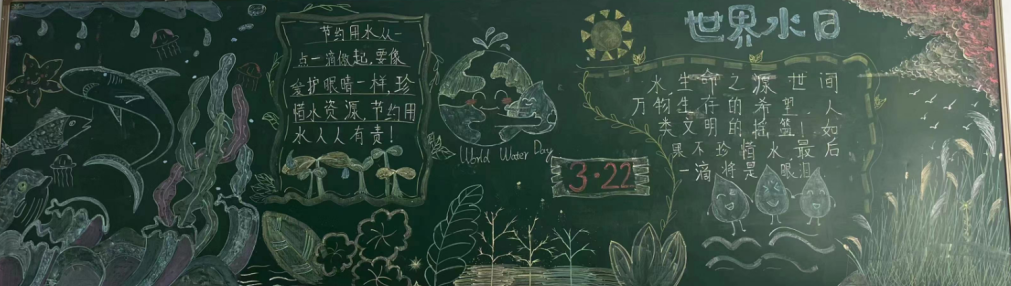 节约用水从一
点一滴做起,要像
爱护眼睛一样,珍
惜水资源,节约用
水人人有责!
World Water Day
3·22
世界水日
水生命之源世间
万物生存的希望 人
类文明的摇篮!如
果不珍惜水最后
一滴将是眼泪